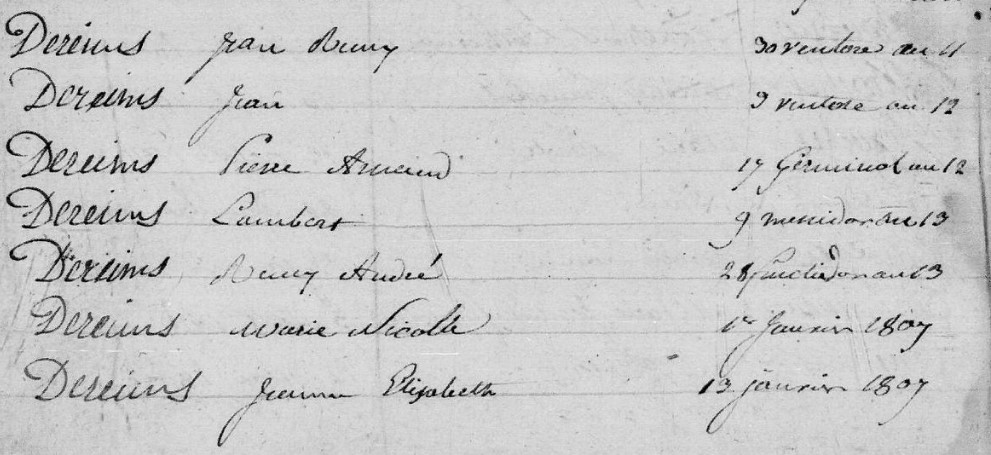 Dereims Jean Remy 30 ventose an 11
Dereims Jean 9 ventose an 12
Dereims Pierre Amand 17 Germinal an 12
Dereims Lambert 9 messidor an 13
Dereims Remy André 28 fructidor an 13
Dereims Marie Nicolle 1er Janvier 1807
Dereims Jeanne Elizabeth 13 janvier 1807